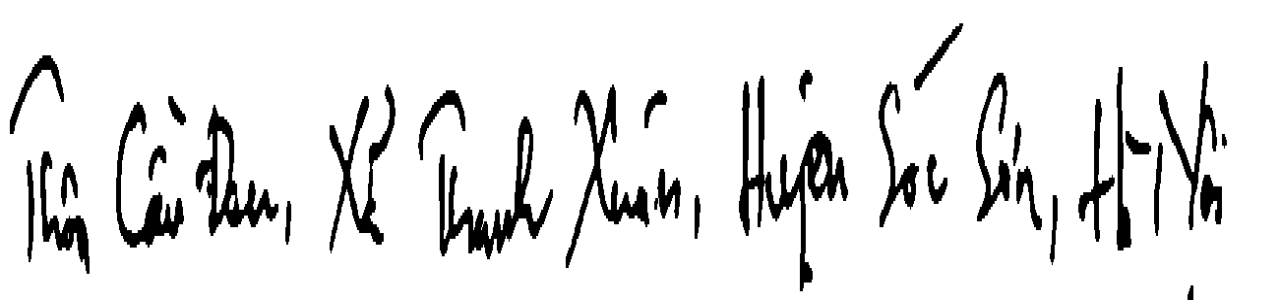 Thôn Cầu Đan, Xã Thanh Xuân, Huyện Sóc Sơn, Hà Nội